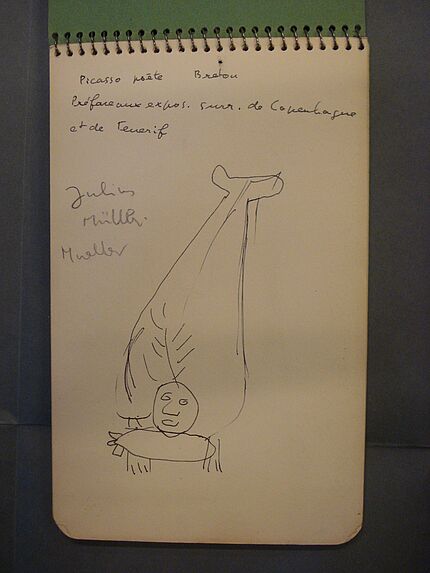 Picasso poète Breton
Préface aux expos. surr. de Copenhague
et de Tenerif
Julius
Müller.
Mueller